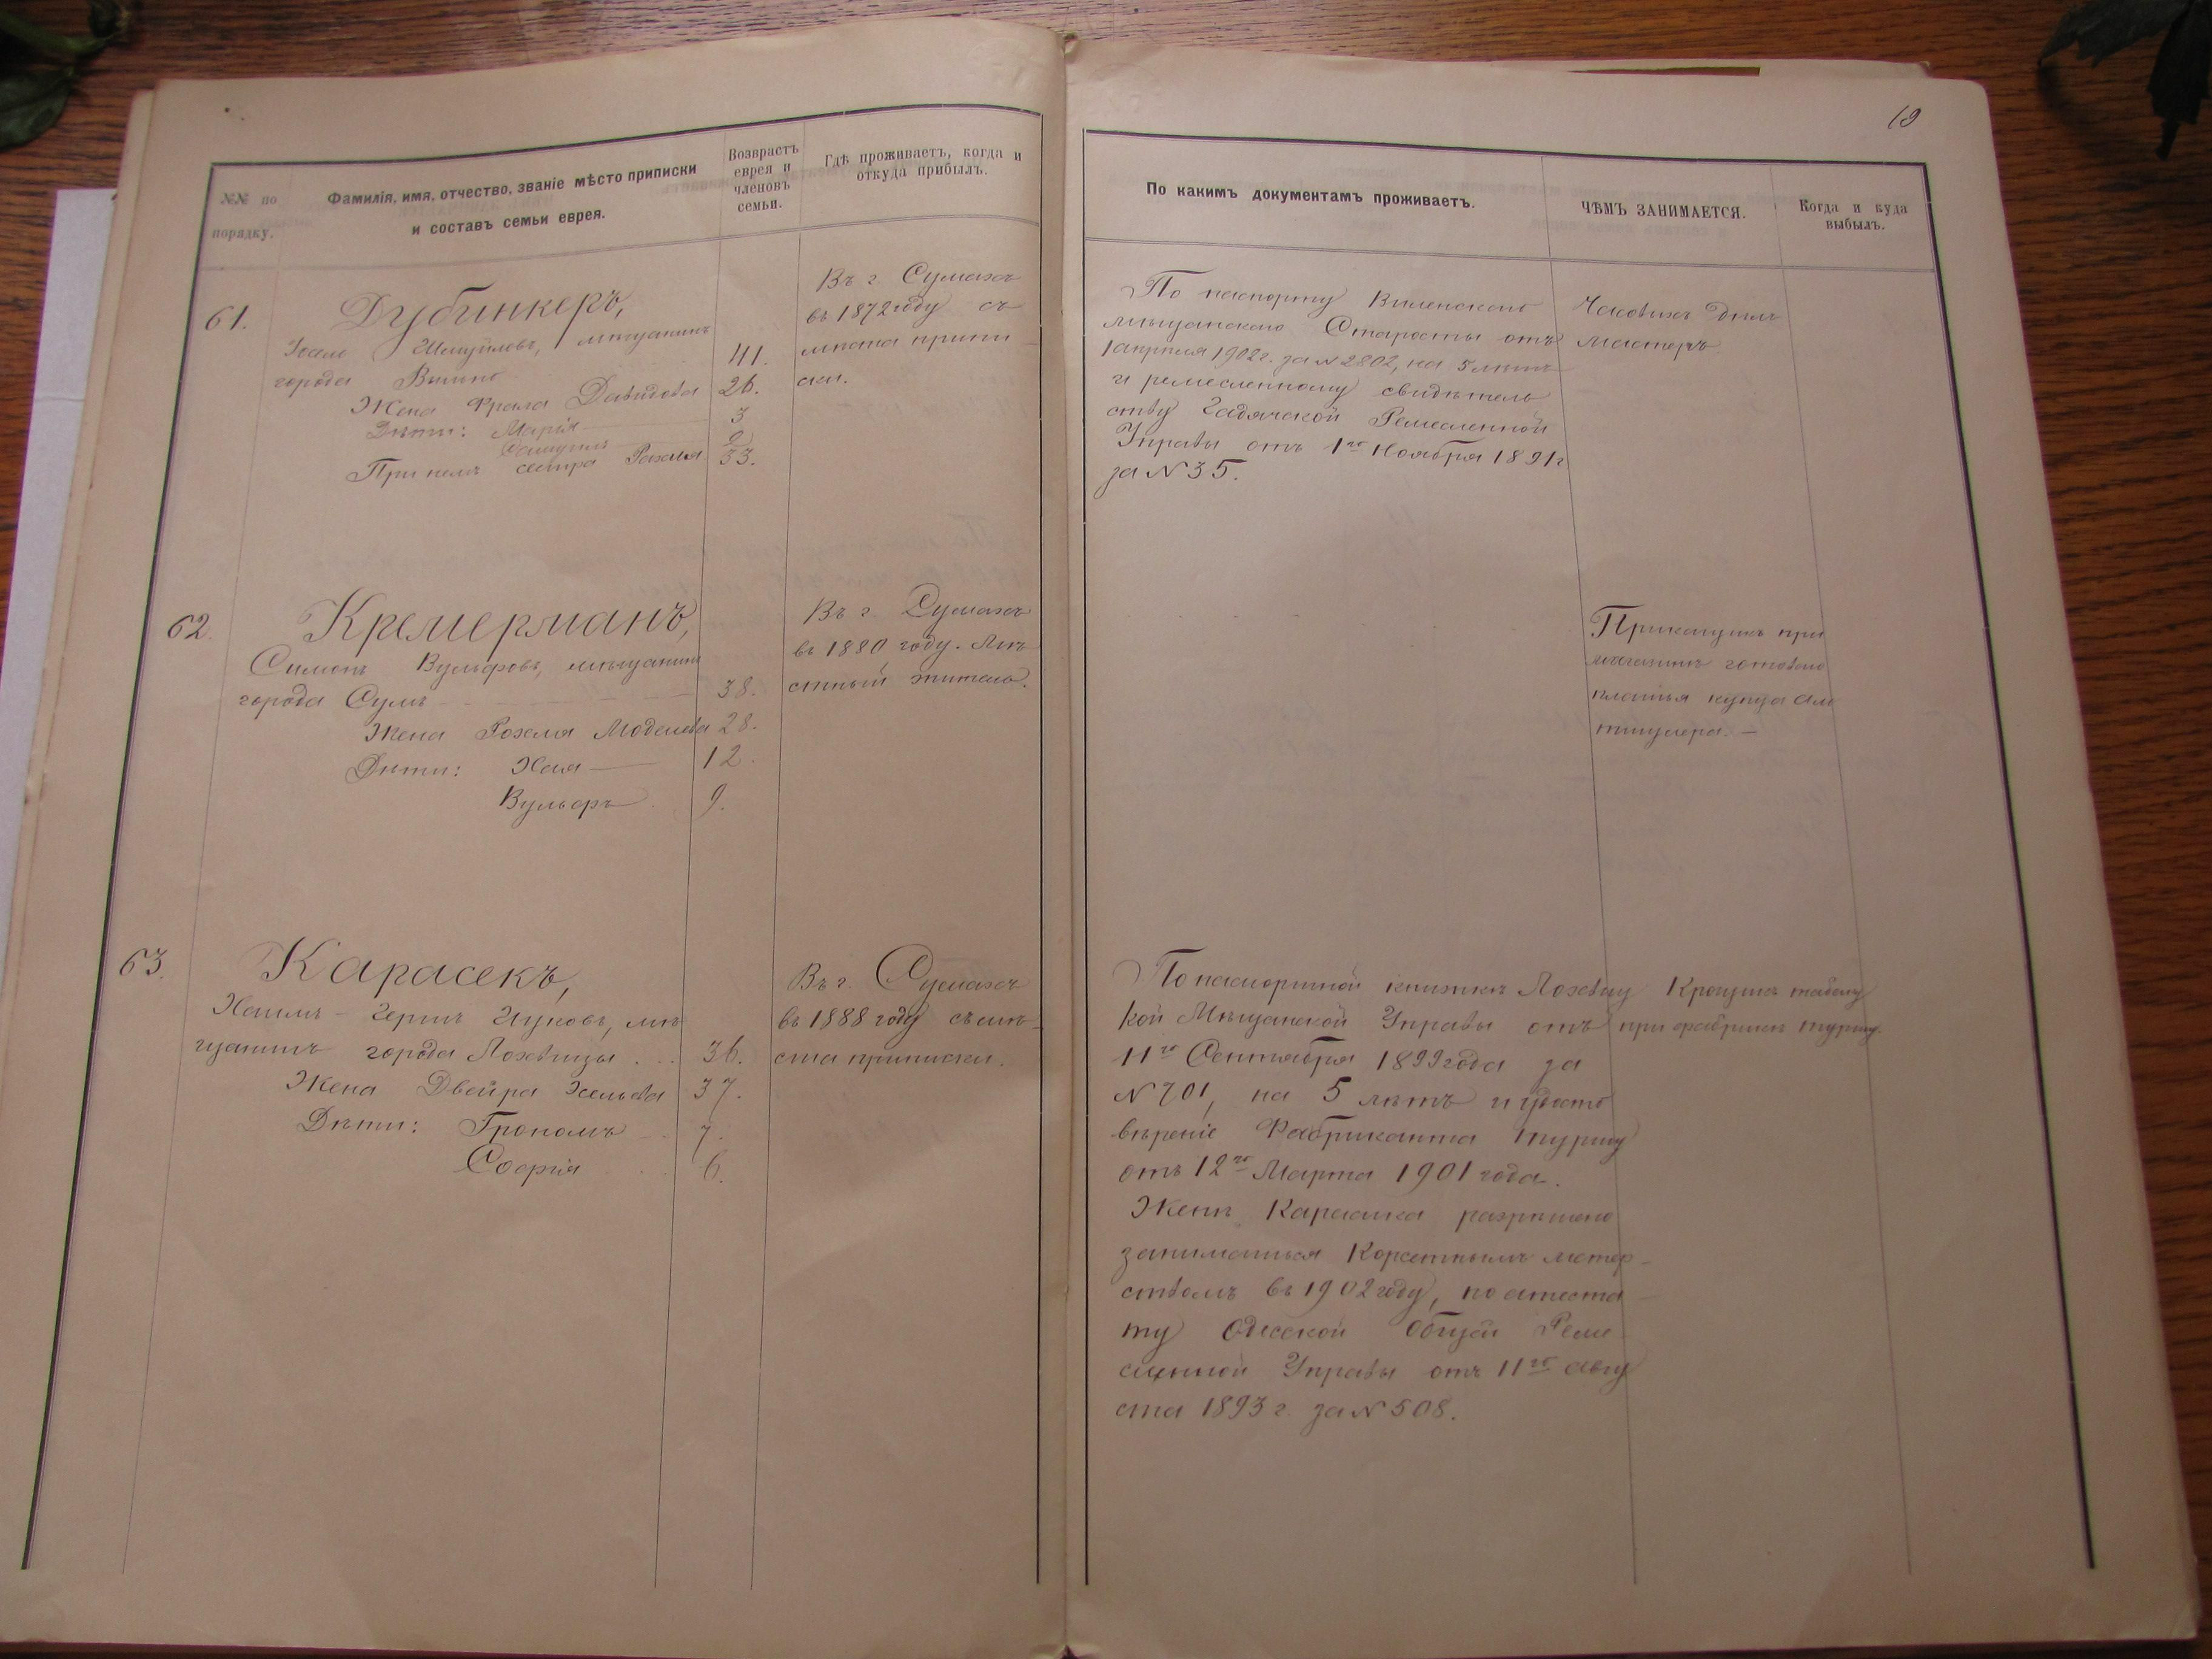 19
№№ по
порядку.
Фамилія, имя, отчество, званіе мѣсто приписки
и составъ семьи еврея.
Возврастъ
еврея и
членовъ
семьи.
Гдѣ проживаетъ, когда и
откуда прибылъ.
По какимъ документамъ проживаетъ.
ЧѢМЪ ЗАНИМАЕТСЯ.
Когда и куда
выбылъ.
61.
Дубинкеръ,
Шмуйловъ, мѣщанинъ
города Вильно 41.
Жена Фрала Давидова 26.
Дѣти: Марія 3
2
При немъ сестра Рахиля 33.
Въ г. Сумахъ
въ 1872 году съ
мѣста припи
ски.
По паспорту Виленскаго
мѣщанскаго Старосты отъ
1 апрѣля 1902 г. за № 2802, на 5 лѣтъ
и ремесленному свидѣтель
ству Гадячской Ремесленной
Управы отъ 1го Ноября 1891 г
за № 35.
Часовыхъ дѣлъ
мастеръ
62.
Кремерманъ,
Симонъ Вульфовъ, мѣщанинъ
города Сумъ 38.
Жена Рохля Моделева 28.
Дѣти: Хая 12
Вульфъ 9.
Въ г. Сумахъ
въ 1880 году. Мѣ
стный житель.
Прикащикъ при
магазинѣ готоваго
платья купца Аль
тшулера. —
63.
Карасекъ,
Хаимъ-Гершъ Ицковъ, мѣ
щанинъ города Лохвицы 36.
Жена Двейра Хельева 37.
Дѣти: 7.
Софія 6.
Въ г. Сумахъ
въ 1888 году съ мѣ-
ста приписки.
По паспортной книжкѣ Лохвиц
кой Мѣщанской Управы отъ
11го Сентября 1899 года за
№ 701, на 5 лѣтъ и удосто
вѣреніе Фабриканта
отъ 12го Марта 1901 года.
Женѣ Карасика разрѣшено
заниматься Корсетнымъ мстер-
ствомъ въ 1902 году, по атеста
ту Одесской Общей Реме
сленной Управы отъ 11го Авгу
ста 1893 г. за № 508.
при фабрикѣ